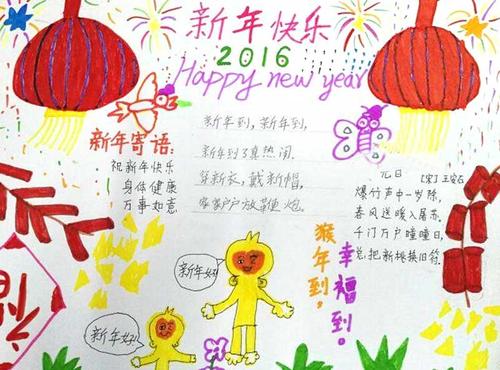 新年快乐
2016
Happy new year
新年到，新年到，
新年到了真热闹。
穿新衣，戴新帽，
家家户户放鞭炮。
新年寄语：
祝新年快乐
身体健康
万事如意
元日 [宋]王安石
爆竹声中一岁除，
春风送暖入屠苏。
千门万户瞳瞳日，
总把新桃换旧符。
猴年到。
幸福到。
新年好！
新年好！
福